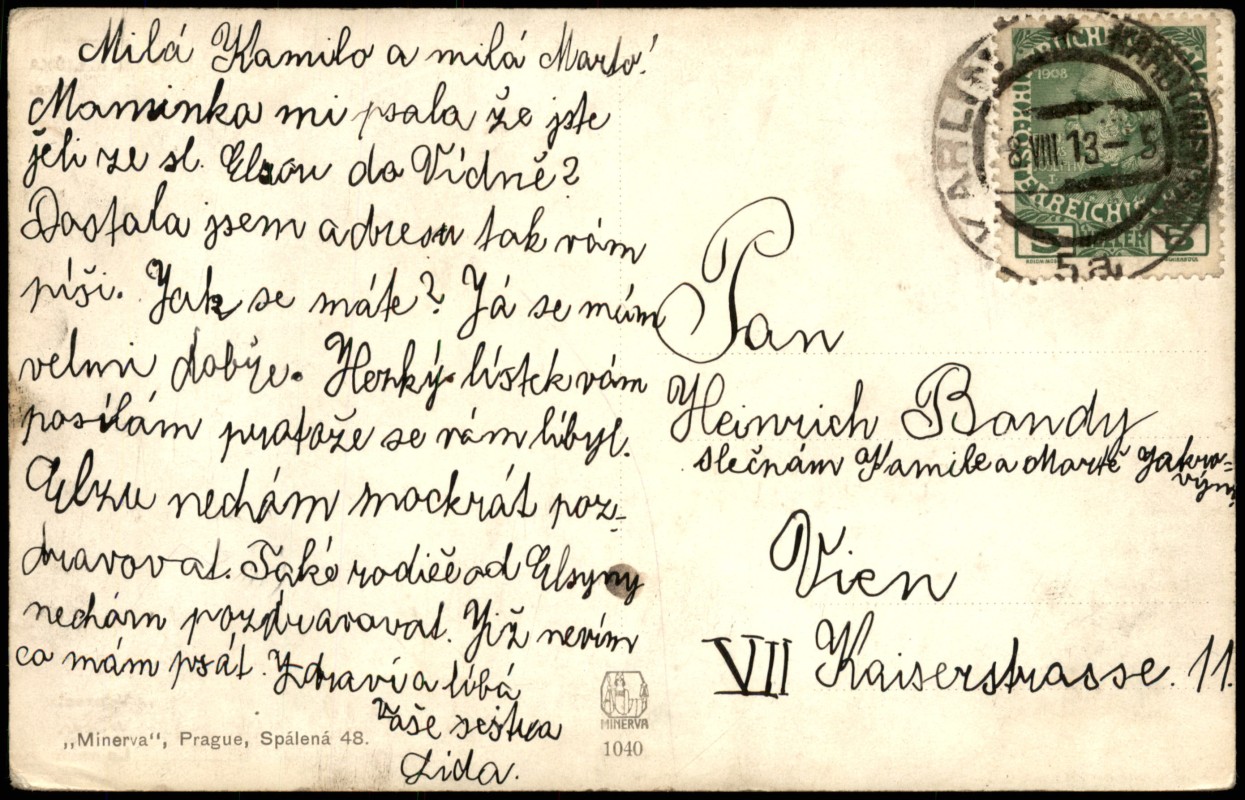 Milá Kamilo a milá Marto!
Maminka mi psala že jste
jeli ze sl. Elsou do Vídně?
Dostala jsem adresu tak vám
píši. Jak se máte? Já se mám
velmi dobře. Hezký lístek vám
posílám protože se vám líbyl.
Elzu nechám mockrát poz-
dravovat. Také rodiče od Elsyny
nechám pozdravovat. Již nevím
co mám psát. Zdraví a líbá
Vaše sestra
Lida.
„Minerva“, Prague, Spálená 48.
MINERVA
1040
1908
VIII 13-5
KAROLINENTHAL
KARLÍN
5a
5 HELLER 5
Pan
Heinrich Bandy
slečnám Kamile a Martě
Vien
VII Kaiserstrasse. 11.